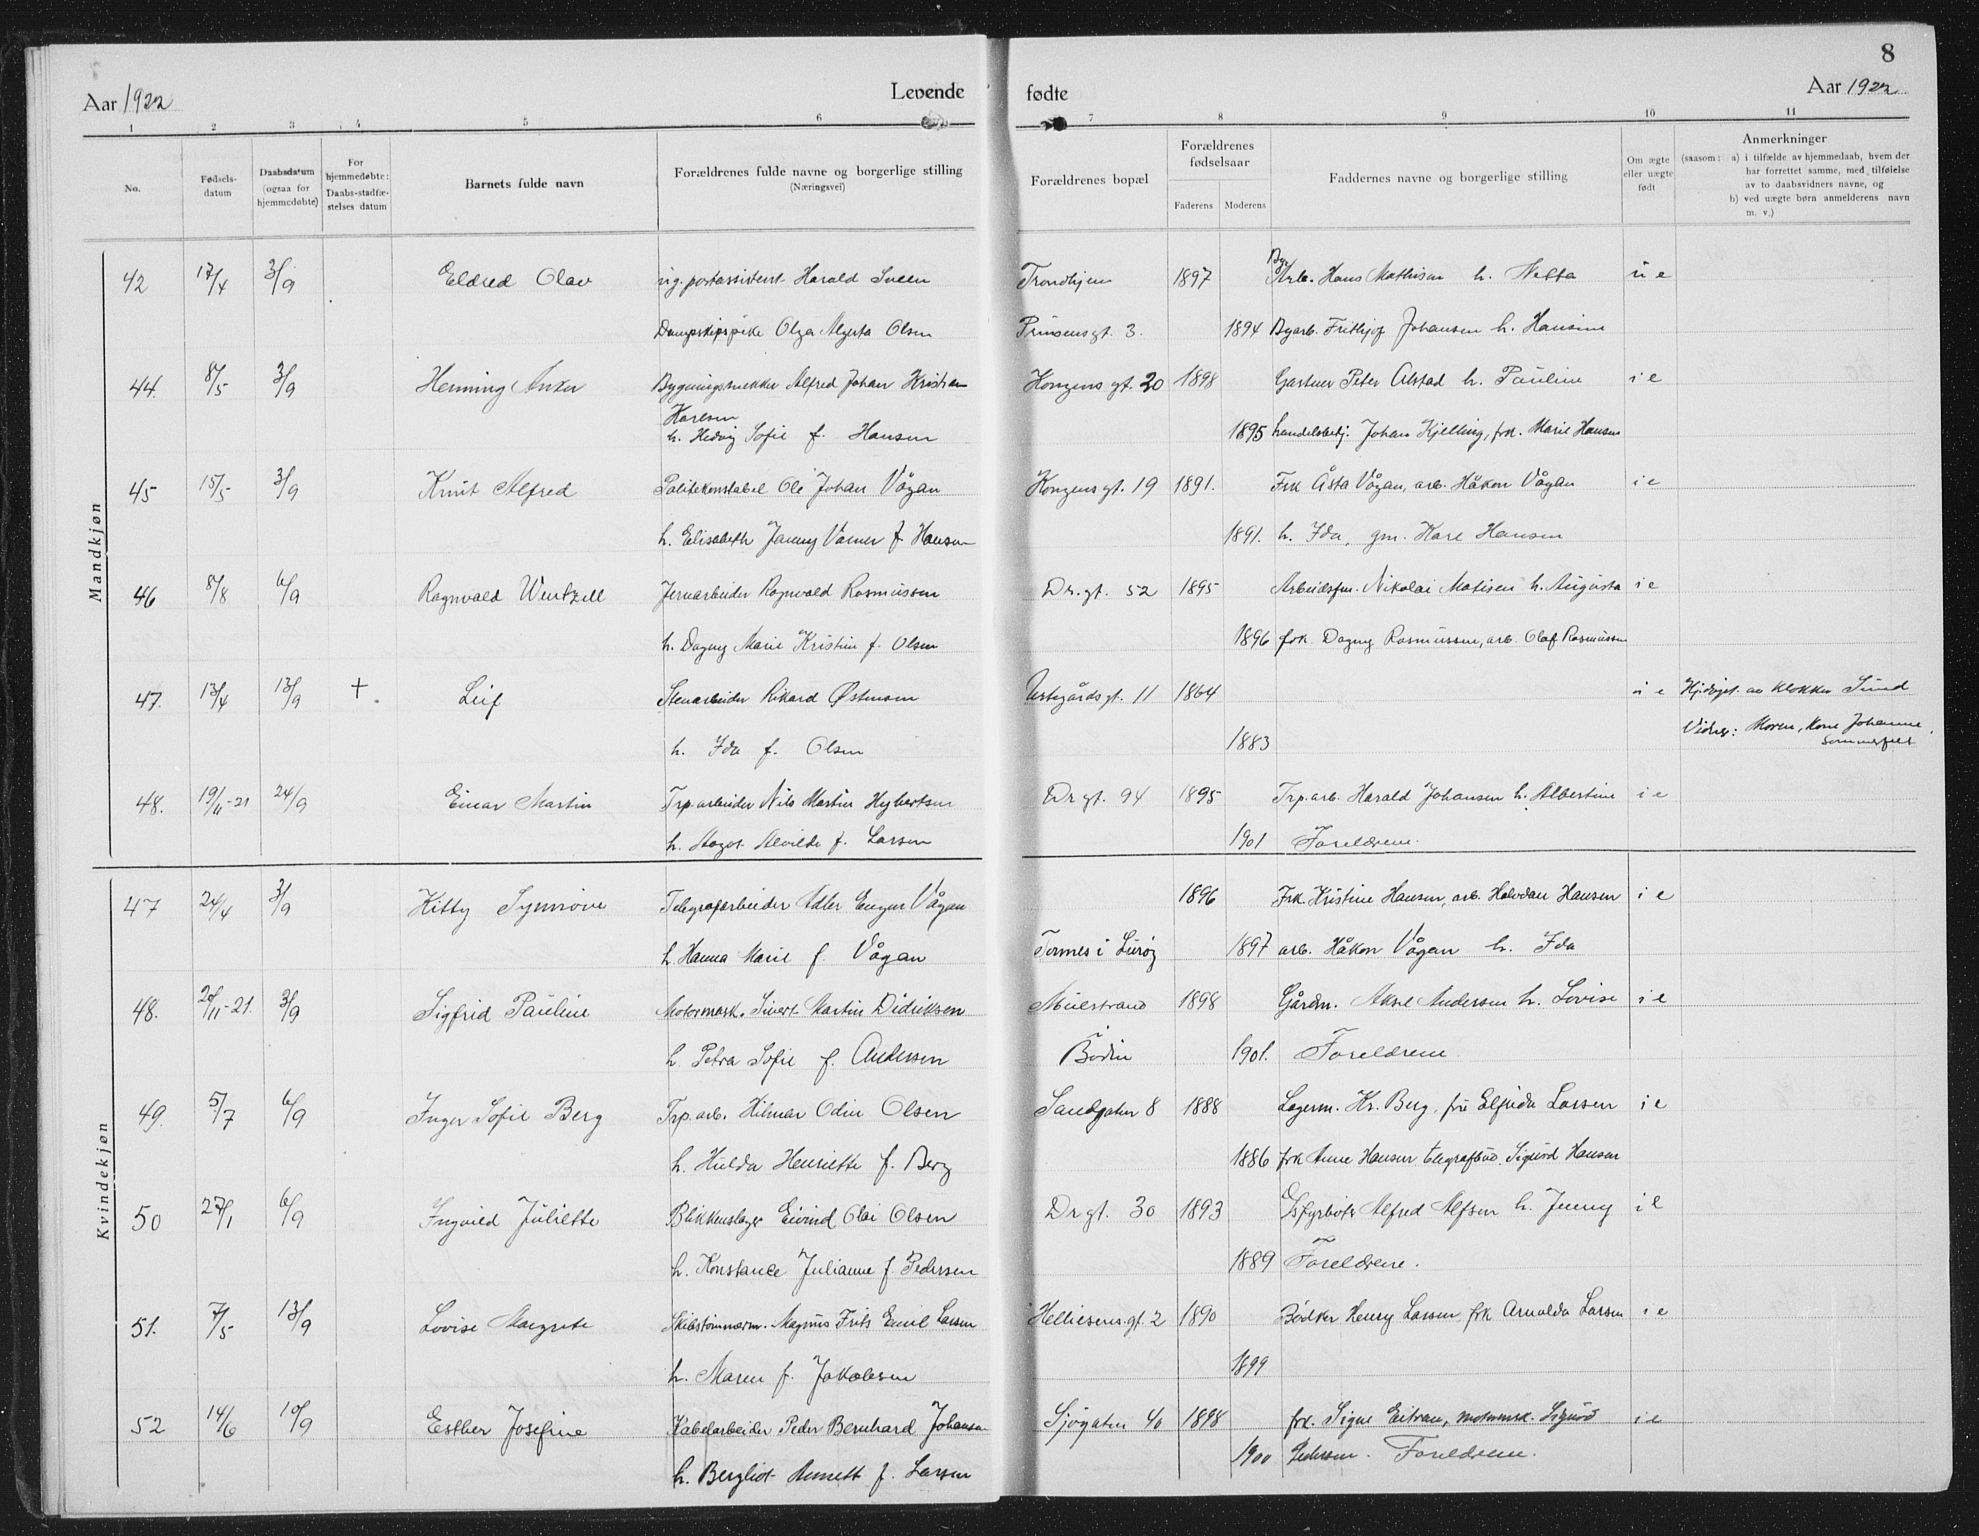 8
Aar 1922 Levende fødte Aar 1922
1 2 3 4 5 6 7 8 9 10 11
No.
Fødsels-
datum
Daabsdatum
(ogsaa for
hjemmedøbte)
For
hjemmedøbte:
Daabs-stadfæ-
stelses datum
Barnets fulde navn
Forældrenes fulde navne og borgerlige stilling
(Næringsvei)
Forældrenes bopæl
Forældrenes
fødselsaar
Faderens Moderens
Faddernes navne og borgerlige stilling
Om ægte
eller uægte
født
Anmerkninger
(saasom: a) i tilfælde av hjemmedaab, hvem der
har forrettet samme, med tilføielse
av to daabsvidners navne, og
b) ved uægte børn anmelderens navn
m. v.)
Mandkjøn
42 17/4 3/9 Eldred Olav ug. postassistent Harald Sveen Trondhjem 1897 Arb. Hans Mathisen h. Netta u e
Olga Olsen Prinsensgt. 3. 1894 Byarb. Frithjof Johansen h. Hansine
44. 8/5 3/9 Henning Anker Bygningssnekker Alfred Johan Kristian Kongens gt. 20 1898 Gartner Peter Alstad h. Pauline i e
Karlsen
h. Hedvig Sofie f. Hansen 1895 handelsbetj. Johan Kjelling, frk. Marie Hansen
45 15/5 3/9 Knut Alfred Politikonstabel Ole Johan Vågan Kongensgt. 19 1891. Frk Åsta Vågan, arb. Håkon Vågan i e
h. Elisabeth Jenny Varner f. Hansen 1891. h. Ida, gm. Kare Hansen
46 8/8 6/9 Ragnvald Wentzell Jernarbeider Ragnvald Rasmussen Dr.gt. 52 1895 Arbeidsfm. Nikolai Matisen h. Augusta i e
h. Dagny Marie Kristine f. Olsen 1896 frk. Dagny Rasmussen, arb. Olaf Rasmussen
47. 13/4 13/9 + Leif Stenarbeider Rikard Østensen 11 1864 i e Hj.døpt. av klokker Sund
h. Ida f. Olsen 1883 Vidner: Moren, kone Johanne
Sommerfelt
48. 19/11-21 24/9 Einar Martin Trp.arbeider Nils Martin Hybertsen Dr gt. 94 1895 Trp.arb. Harald Johansen h. Albertine i e
h. Aagot Alvilde f. Larsen 1901 Foreldrene.
Kvindekjøn
47 24/4 3/9 Kitty Synnøve Telegrafarbeider Adler Vågan 1896 Frk. Kristine Hansen, arb. Halvdan Hansen i e
h Hanna Marie f Vågan Tonnes i Lurøy 1897 arb. Håkon Vågan h. Ida
48. 3/9 Sigfrid Pauline Motormask. Sivert Martin Didriksen 1898 Gårdm. Aksel Andersen h. Lovise i e
h Petra Sofie f. Andersen Bodin 1901. Foreldrene.
49. 5/7 6/9 Inger Sofie Berg Trp.arb. Hilmar Odin Olsen Sandgaten 8 1888 Lagerm. Kr. Berg, fru Elfrida Larsen i e
h. Hulda Henriette f. Berg 1886 frk Anne Hansen telegrafbud. Sigurd Hansen
50 27/1 6/9 Ingvild Juliette Blikkenslager Eivind Olai Olsen Dr gt. 30 1893 Alfred Alfsen h. Jenny i e
h. Konstance Julianne f Pedersen 1889 Foreldrene.
51. 7/5 13/9 Lovise Margrete Skibstømmerm. Magnus Frits Emil Larsen Helliesens.gt. 2 1890 Bødker Henry Larsen frk Arnalda Larsen i e
h. Maren f. Jakobsen 1899
52 14/6 10/9 Esther Josefine Kabelarbeider Peder Bernhard Johansen Sjøgaten 40 1898 frk. Signe Eitran, motormsk. Sigurd i e
h. Bergliot Annett f. Larsen 1900 Pedersen. Foreldrene.